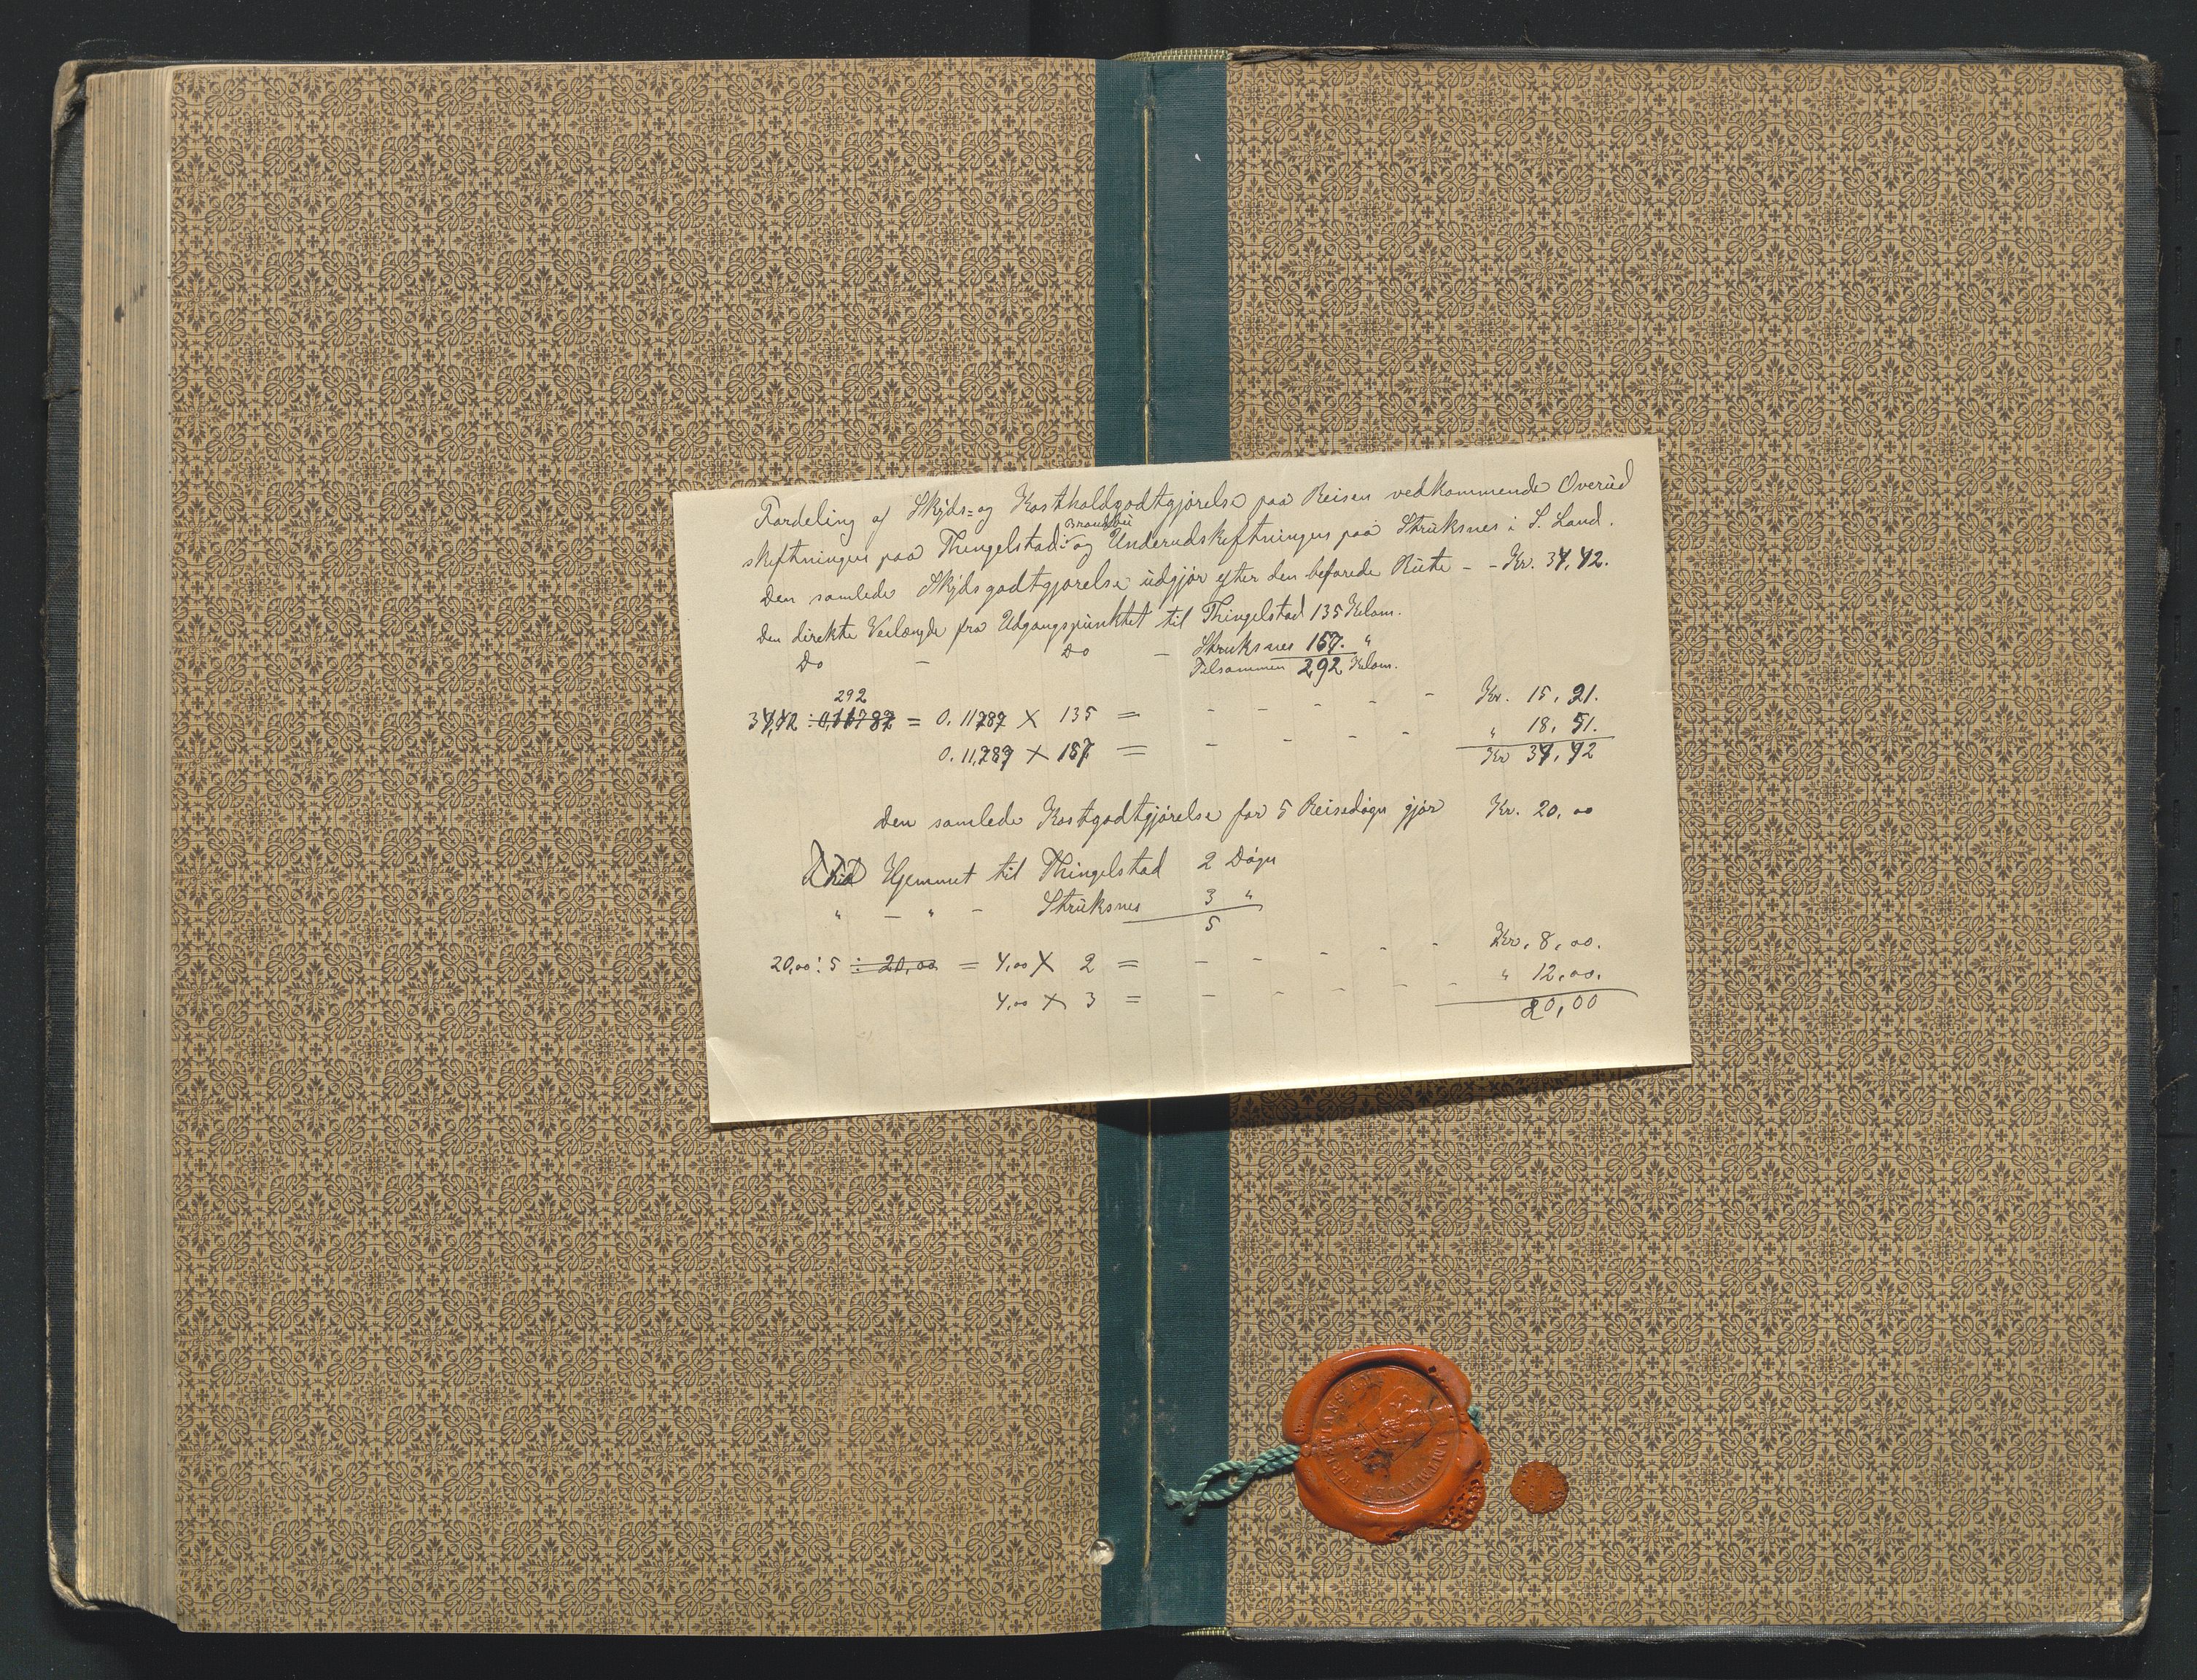 Fordeling af Skyds= og Kostholdgodtgjørelse paa Reisen vedkommende Overud
skiftningen paa Thingelstad i Brandbu og Underudskiftningen paa Struksnes i S. Land.
Den samlede Skydsgodtgjørelse udgjør efter den befarede Rute - - Kr. 34,42.
Den direkte Veilængde fra Udgangspunktet til Thingelstad 135 Kilom.
Do - Do - Struksnes 157. "
Tilsammen 292 Kilom.
292
34,42 : 0,11787 = 0.11787 × 135 = - - - - - Kr. 15,91.
0.11787 × 157 = - - - - " 18,51.
Kr 34,42
Den samlede Kostgodtgjørelse for 5 Reisedøgn gjør Kr. 20,00
Hjemmet til Thingelstad 2 Døgn
" - " - Struksnes 3 "
5
20,00 : 5 : 20,00 = 4,00 × 2 = - - - - - Kr. 8,00.
4,00 × 3 = - - - - - " 12,00.
20,00
CHRISTIANS AMT